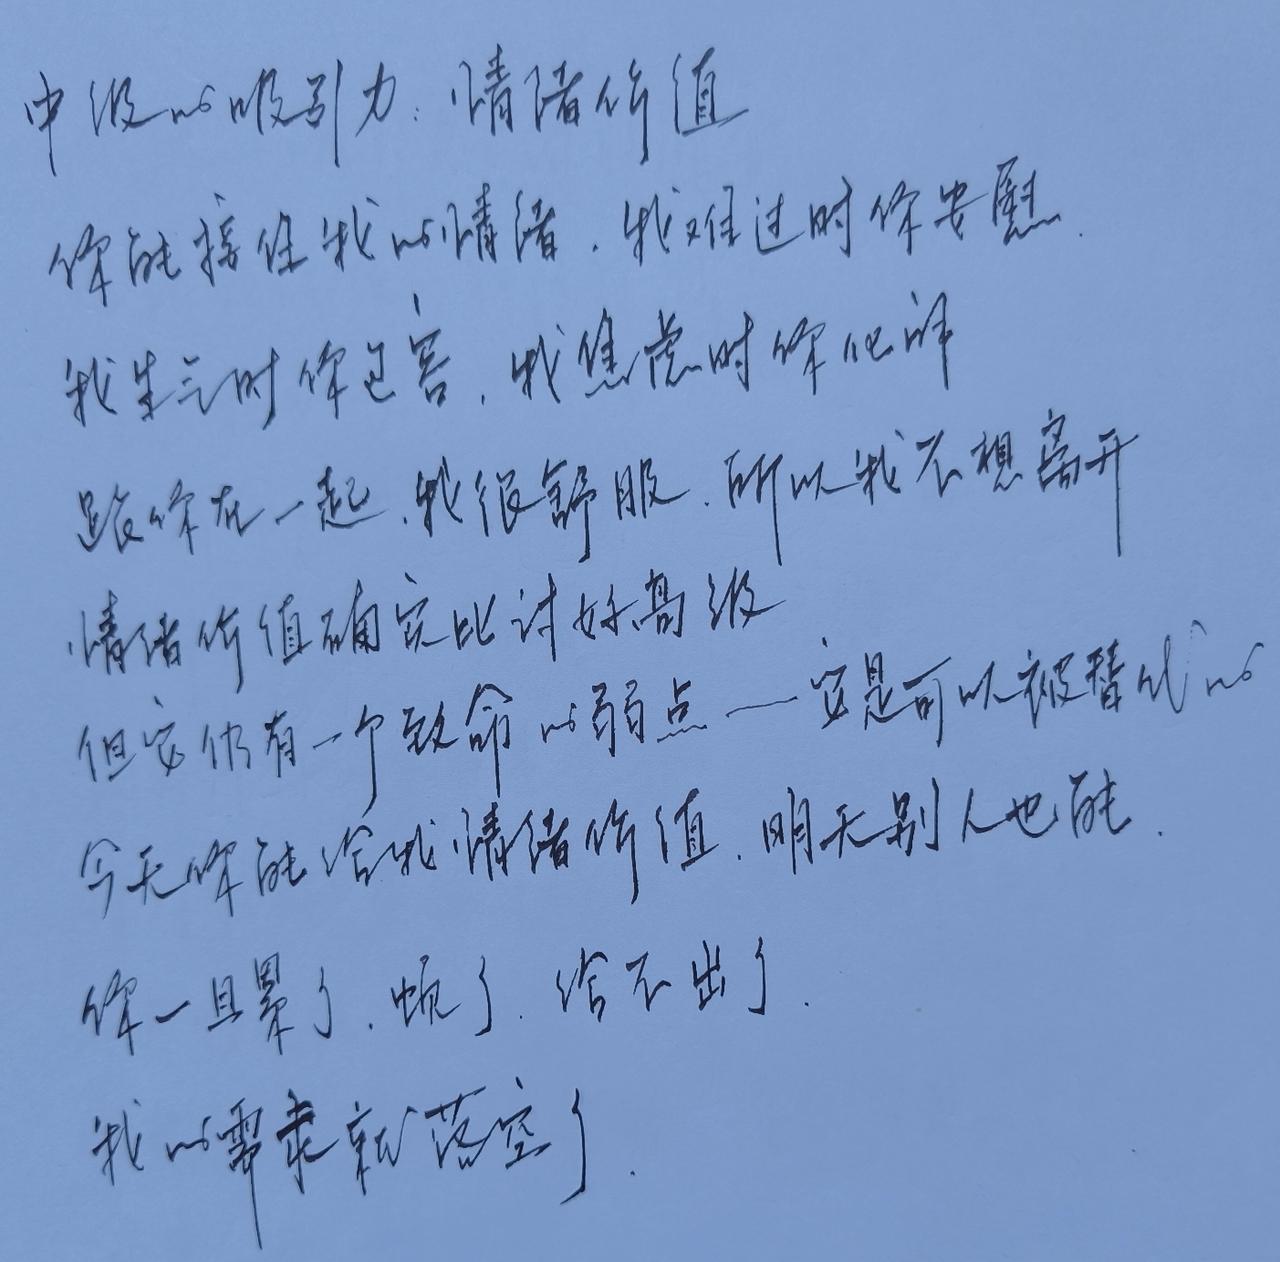 中级的吸引力：情绪价值
你能接住我的情绪，我难过时你安慰，
我生气时你包容，我焦虑时你化解
跟你在一起，我很舒服，所以我不想离开
情绪价值确实比讨好高级
但它仍有一个致命的弱点——它是可以被替代的
今天你能给我情绪价值，明天别人也能．
你一旦累了，烦了，给不出了．
我的需求就落空了．